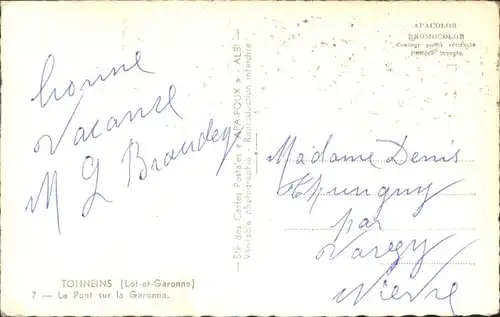 bonne
Vacance
M G Braudey
TONNEINS (Lot-et-Garonne)
7 — Le Pont sur la Garonne.
— Sté des Cartes Postales « APA-POUX » - ALBI —
Véritable photographie - Reproduction interdite
APACOLOR
BROMOCOLOR
Couleur
Procédé breveté
Madame Denis
par
Varzy
Nièvre